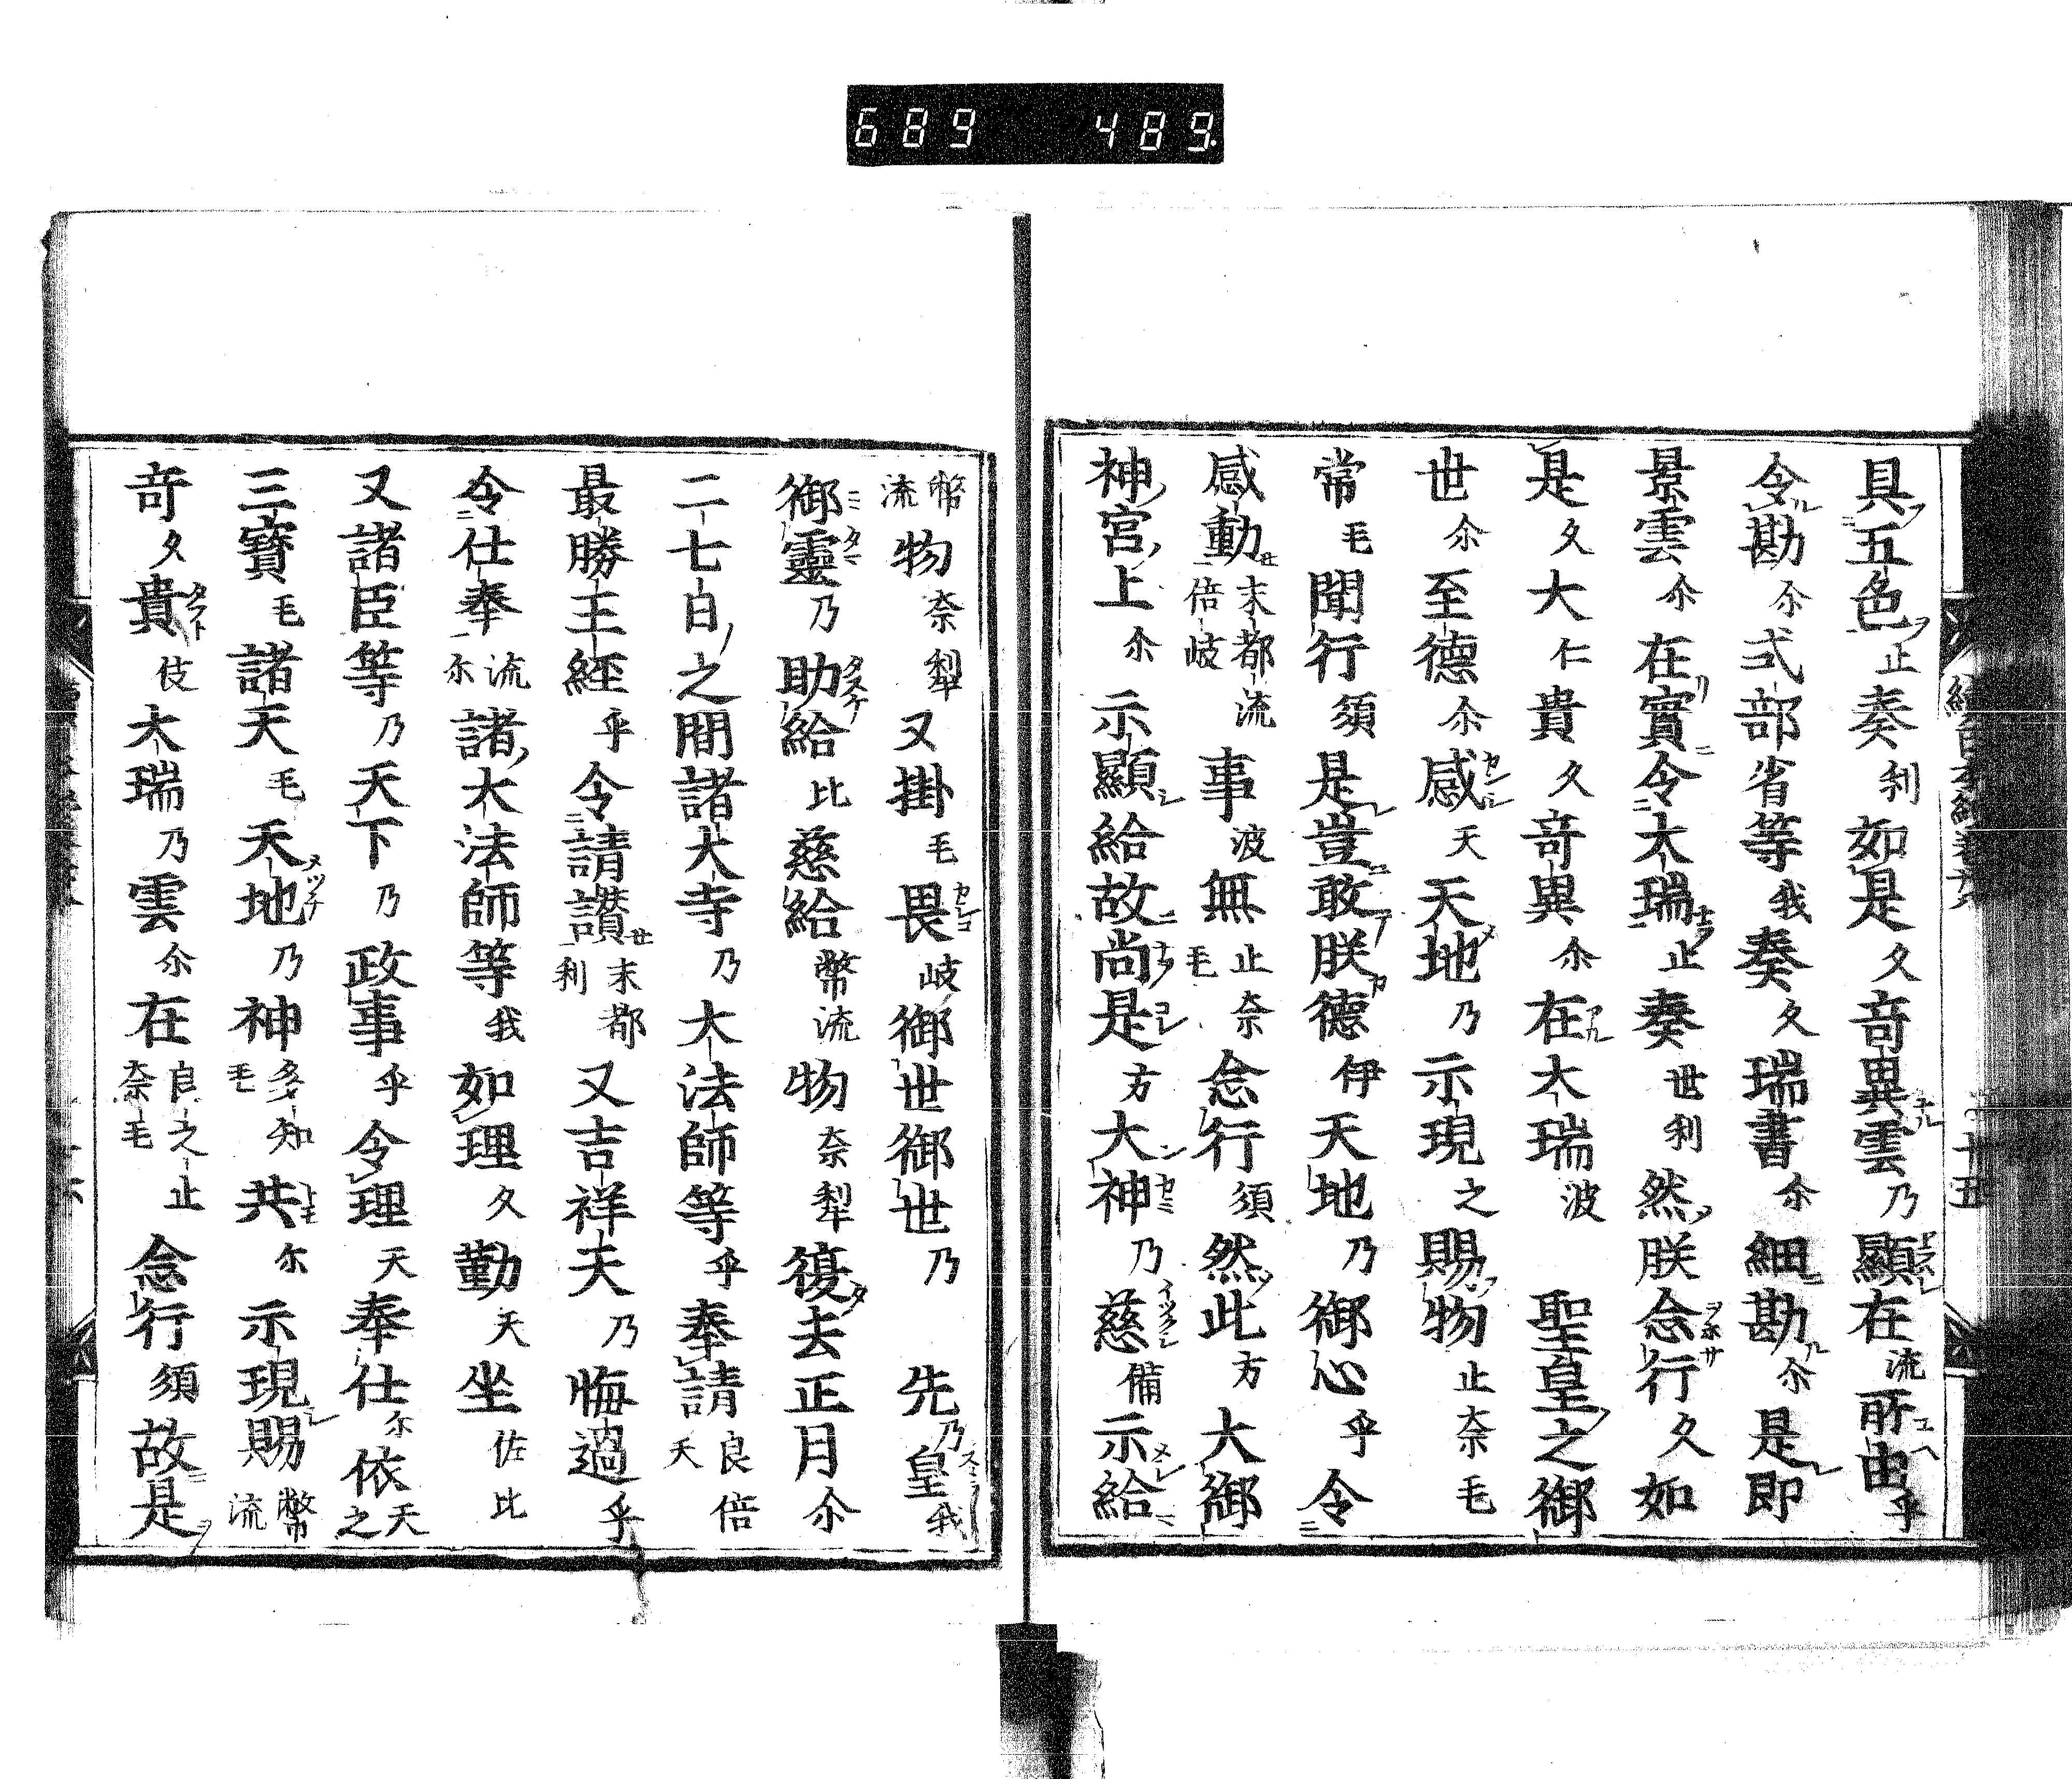 689 489
具五色止奏利如是久竒異雲乃顯在流所由乎
令勘尓式部省等我奏久瑞書尓細勘尓是即
景雲尓在實令大瑞止奏世利然朕念行久如
是久大仁貴久竒異尓在大瑞波聖皇之御
世尓至德尓感天天地乃示現之賜物止奈毛
常毛聞行須是豈敢朕德伊天地乃御心乎令
感動末都流倍岐事波無止奈毛念行須然此方大御
神宮上尓示顯給故尚是方大神乃慈備示給
幣流物奈犁又掛毛畏岐御世御世乃先乃皇我
御靈乃助給比慈給幣流物奈犁復去正月尓
二七日之間諸大寺乃大法師等乎奉請良倍天
最勝王經乎令請讃末都利又吉祥天乃悔過乎
令仕奉流尓諸大法師等我如理久勤天坐佐比
又諸臣等乃天下乃政事乎令理天奉仕尓依天之
三寶毛諸天毛天地乃神多知毛共尓示現賜幣流
竒久貴伎大瑞乃雲尓在良之止奈毛念行須故是